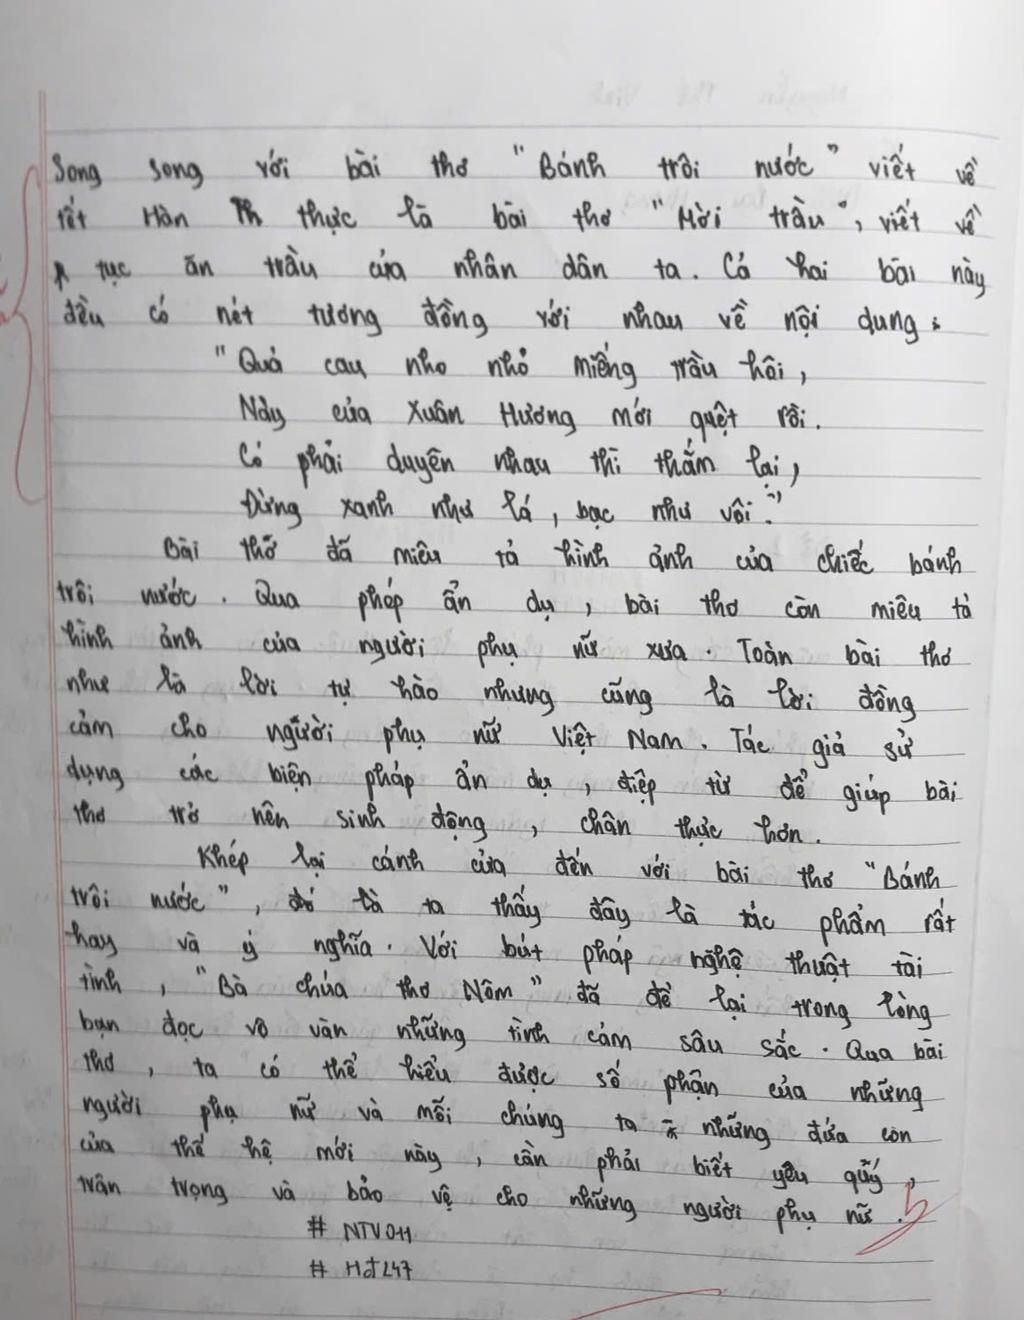 Song song với bài thơ "Bánh trôi nước" viết về
tết Hàn thực là bài thơ "Mời trầu", viết về
tục ăn trầu của nhân dân ta. Cả hai bài này
đều có nét tương đồng với nhau về nội dung:
"Quả cau nho nhỏ miếng trầu hôi,
Này của Xuân Hương mới quệt rồi.
Có phải duyên nhau thì thắm lại,
Đừng xanh như lá, bạc như vôi."
Bài thơ đã miêu tả hình ảnh của chiếc bánh
trôi nước. Qua phép ẩn dụ, bài thơ còn miêu tả
hình ảnh của người phụ nữ xưa. Toàn bài thơ
như là lời tự hào nhưng cũng là lời đồng
cảm cho người phụ nữ Việt Nam. Tác giả sử
dụng các biện pháp ẩn dụ, điệp từ để giúp bài
thơ trở nên sinh động, chân thực hơn.
Khép lại cánh cửa đến với bài thơ "Bánh
trôi nước", ta thấy đây là tác phẩm rất
hay và ý nghĩa. Với bút pháp nghệ thuật tài
tình, "Bà chúa thơ Nôm" đã để lại trong lòng
bạn đọc vô vàn những tình cảm sâu sắc. Qua bài
thơ, ta có thể hiểu được số phận của những
người phụ nữ và mỗi chúng ta những đứa con
của thế hệ mới này, cần phải biết yêu quý,
trân trọng và bảo vệ cho những người phụ nữ.
# NTV011
# Hđ247